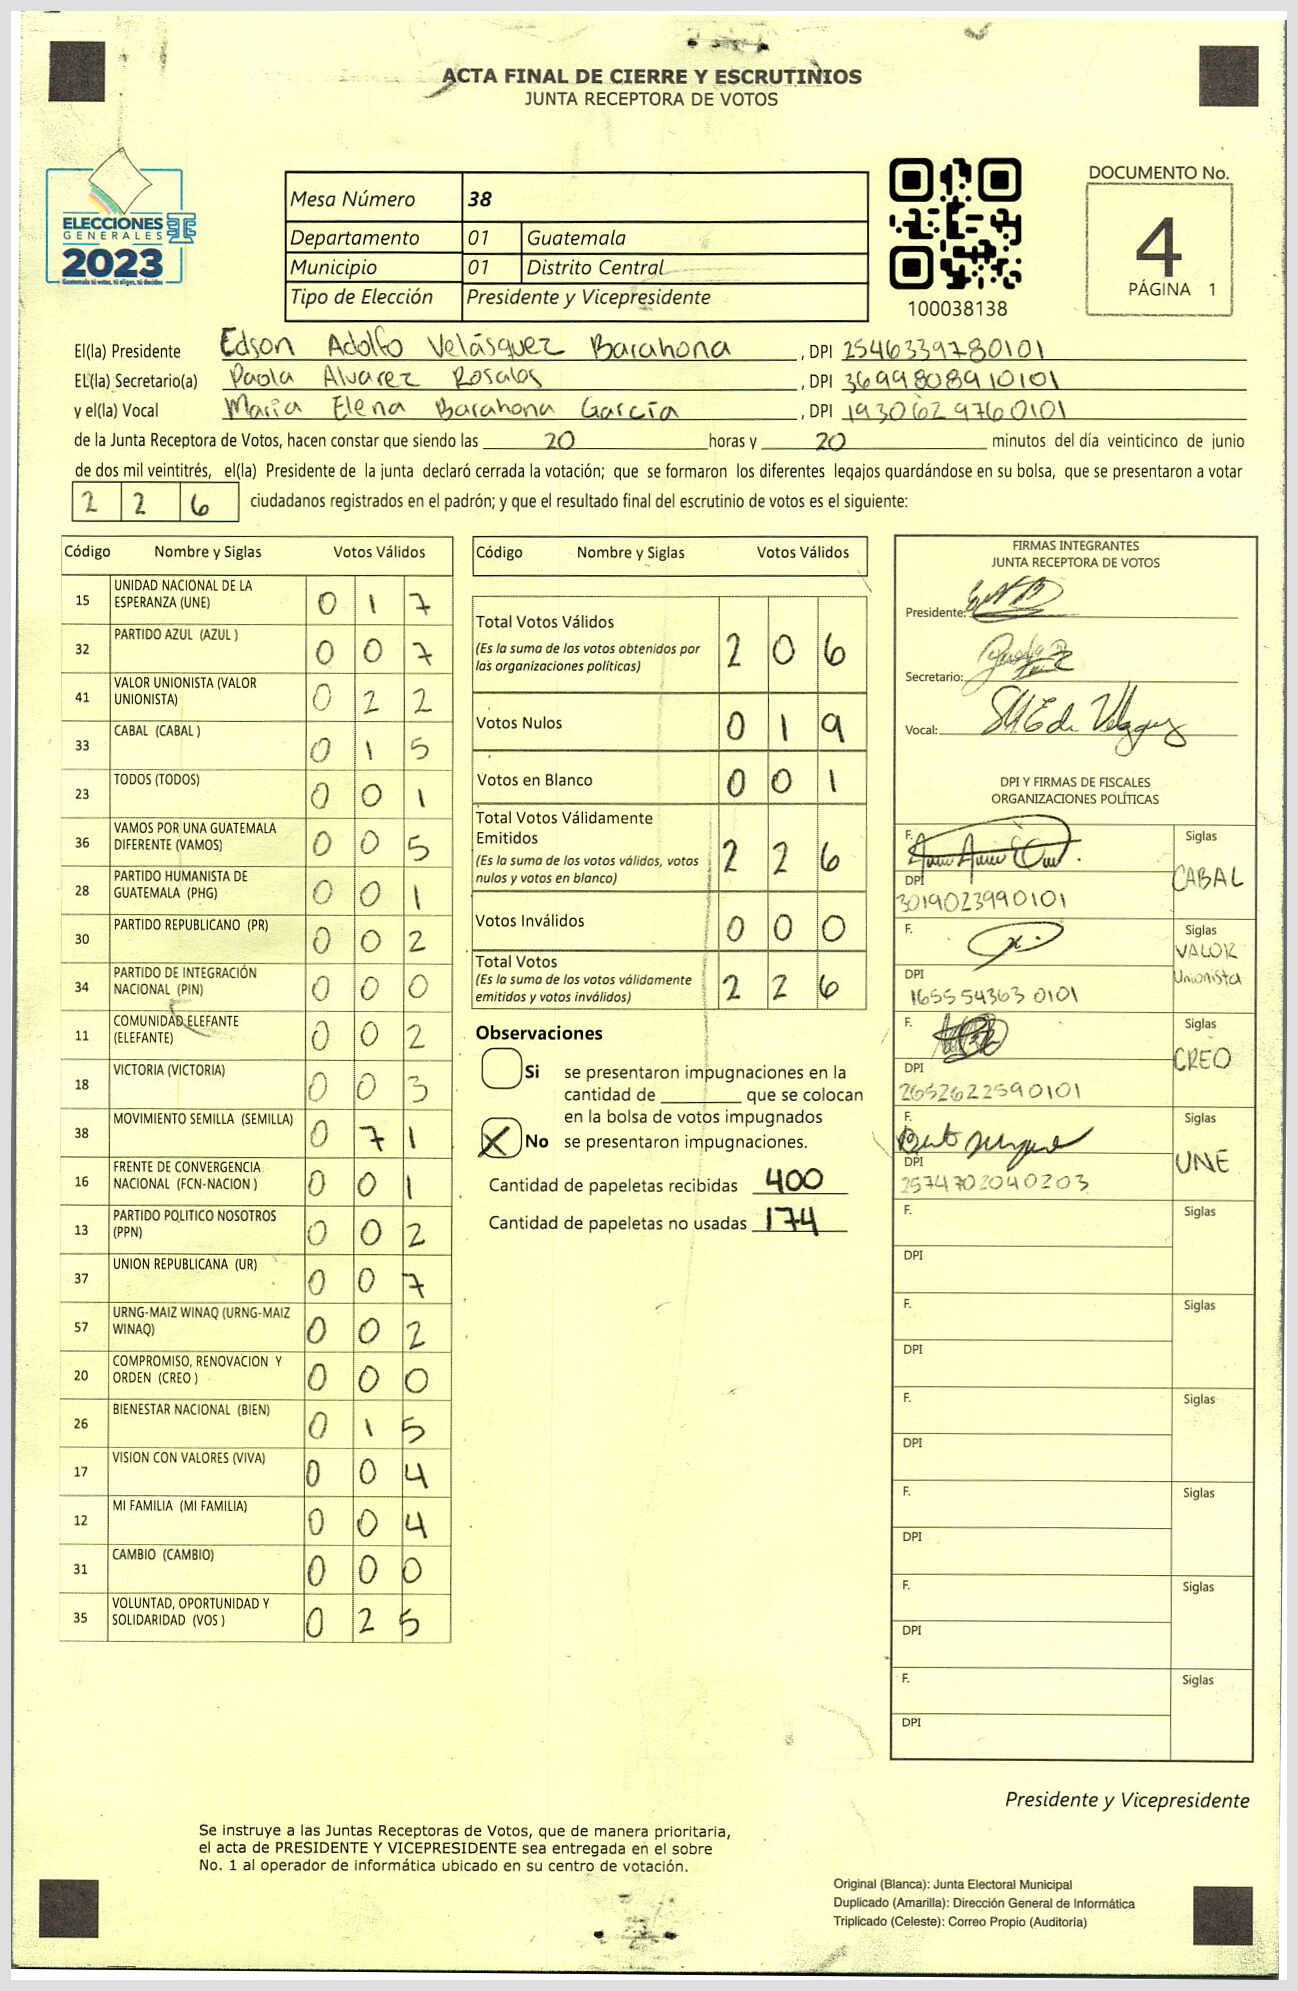 ACTA FINAL DE CIERRE Y ESCRUTINIOS
JUNTA RECEPTORA DE VOTOS
ELECCIONES
GENERALES
2023
Mesa Número 38
Departamento 01 Guatemala
Municipio 01 Distrito Central
Tipo de Elección Presidente y Vicepresidente
100038138
DOCUMENTO No.
4
PÁGINA 1
El(la) Presidente Edson Adolfo Velásquez Barahona , DPI 2546339780101
EL(la) Secretario(a) Paola Alvarez Rosales , DPI 3699808910101
y el(la) Vocal Maria Elena Barahona García , DPI 1930629760101
de la Junta Receptora de Votos, hacen constar que siendo las 20 horas y 20 minutos del día veinticinco de junio
de dos mil veintitrés, el(la) Presidente de la junta declaró cerrada la votación; que se formaron los diferentes legajos guardándose en su bolsa, que se presentaron a votar
2 2 6 ciudadanos registrados en el padrón; y que el resultado final del escrutinio de votos es el siguiente:
Código Nombre y Siglas Votos Válidos
15 UNIDAD NACIONAL DE LA ESPERANZA (UNE) 0 1 7
32 PARTIDO AZUL (AZUL ) 0 0 7
41 VALOR UNIONISTA (VALOR UNIONISTA) 0 2 2
33 CABAL (CABAL ) 0 1 5
23 TODOS (TODOS) 0 0 1
36 VAMOS POR UNA GUATEMALA DIFERENTE (VAMOS) 0 0 5
28 PARTIDO HUMANISTA DE GUATEMALA (PHG) 0 0 1
30 PARTIDO REPUBLICANO (PR) 0 0 2
34 PARTIDO DE INTEGRACIÓN NACIONAL (PIN) 0 0 0
11 COMUNIDAD ELEFANTE (ELEFANTE) 0 0 2
18 VICTORIA (VICTORIA) 0 0 3
38 MOVIMIENTO SEMILLA (SEMILLA) 0 7 1
16 FRENTE DE CONVERGENCIA NACIONAL (FCN-NACION ) 0 0 1
13 PARTIDO POLITICO NOSOTROS (PPN) 0 0 2
37 UNION REPUBLICANA (UR) 0 0 7
57 URNG-MAIZ WINAQ (URNG-MAIZ WINAQ) 0 0 2
20 COMPROMISO, RENOVACION Y ORDEN (CREO ) 0 0 0
26 BIENESTAR NACIONAL (BIEN) 0 1 5
17 VISION CON VALORES (VIVA) 0 0 4
12 MI FAMILIA (MI FAMILIA) 0 0 4
31 CAMBIO (CAMBIO) 0 0 0
35 VOLUNTAD, OPORTUNIDAD Y SOLIDARIDAD (VOS ) 0 2 5
Código Nombre y Siglas Votos Válidos
Total Votos Válidos 2 0 6
(Es la suma de los votos obtenidos por
las organizaciones políticas)
Votos Nulos 0 1 9
Votos en Blanco 0 0 1
Total Votos Válidamente
Emitidos 2 2 6
(Es la suma de los votos válidos, votos
nulos y votos en blanco)
Votos Inválidos 0 0 0
Total Votos 2 2 6
(Es la suma de los votos válidamente
emitidos y votos inválidos)
Observaciones
Si se presentaron impugnaciones en la
cantidad de ________ que se colocan
en la bolsa de votos impugnados
X No se presentaron impugnaciones.
Cantidad de papeletas recibidas 400
Cantidad de papeletas no usadas 174
FIRMAS INTEGRANTES
JUNTA RECEPTORA DE VOTOS
Presidente:
Secretario:
Vocal:
DPI Y FIRMAS DE FISCALES
ORGANIZACIONES POLÍTICAS
F. Siglas
CABAL
DPI
3019023990101
F. Siglas
VALOR
Unionista
DPI
1655543630101
F. Siglas
CREO
DPI
2652622590101
F. Siglas
UNE
DPI
2574702040203
F. Siglas
DPI
F. Siglas
DPI
F. Siglas
DPI
F. Siglas
DPI
F. Siglas
DPI
F. Siglas
DPI
Presidente y Vicepresidente
Se instruye a las Juntas Receptoras de Votos, que de manera prioritaria,
el acta de PRESIDENTE Y VICEPRESIDENTE sea entregada en el sobre
No. 1 al operador de informática ubicado en su centro de votación.
Original (Blanca): Junta Electoral Municipal
Duplicado (Amarilla): Dirección General de Informática
Triplicado (Celeste): Correo Propio (Auditoría)